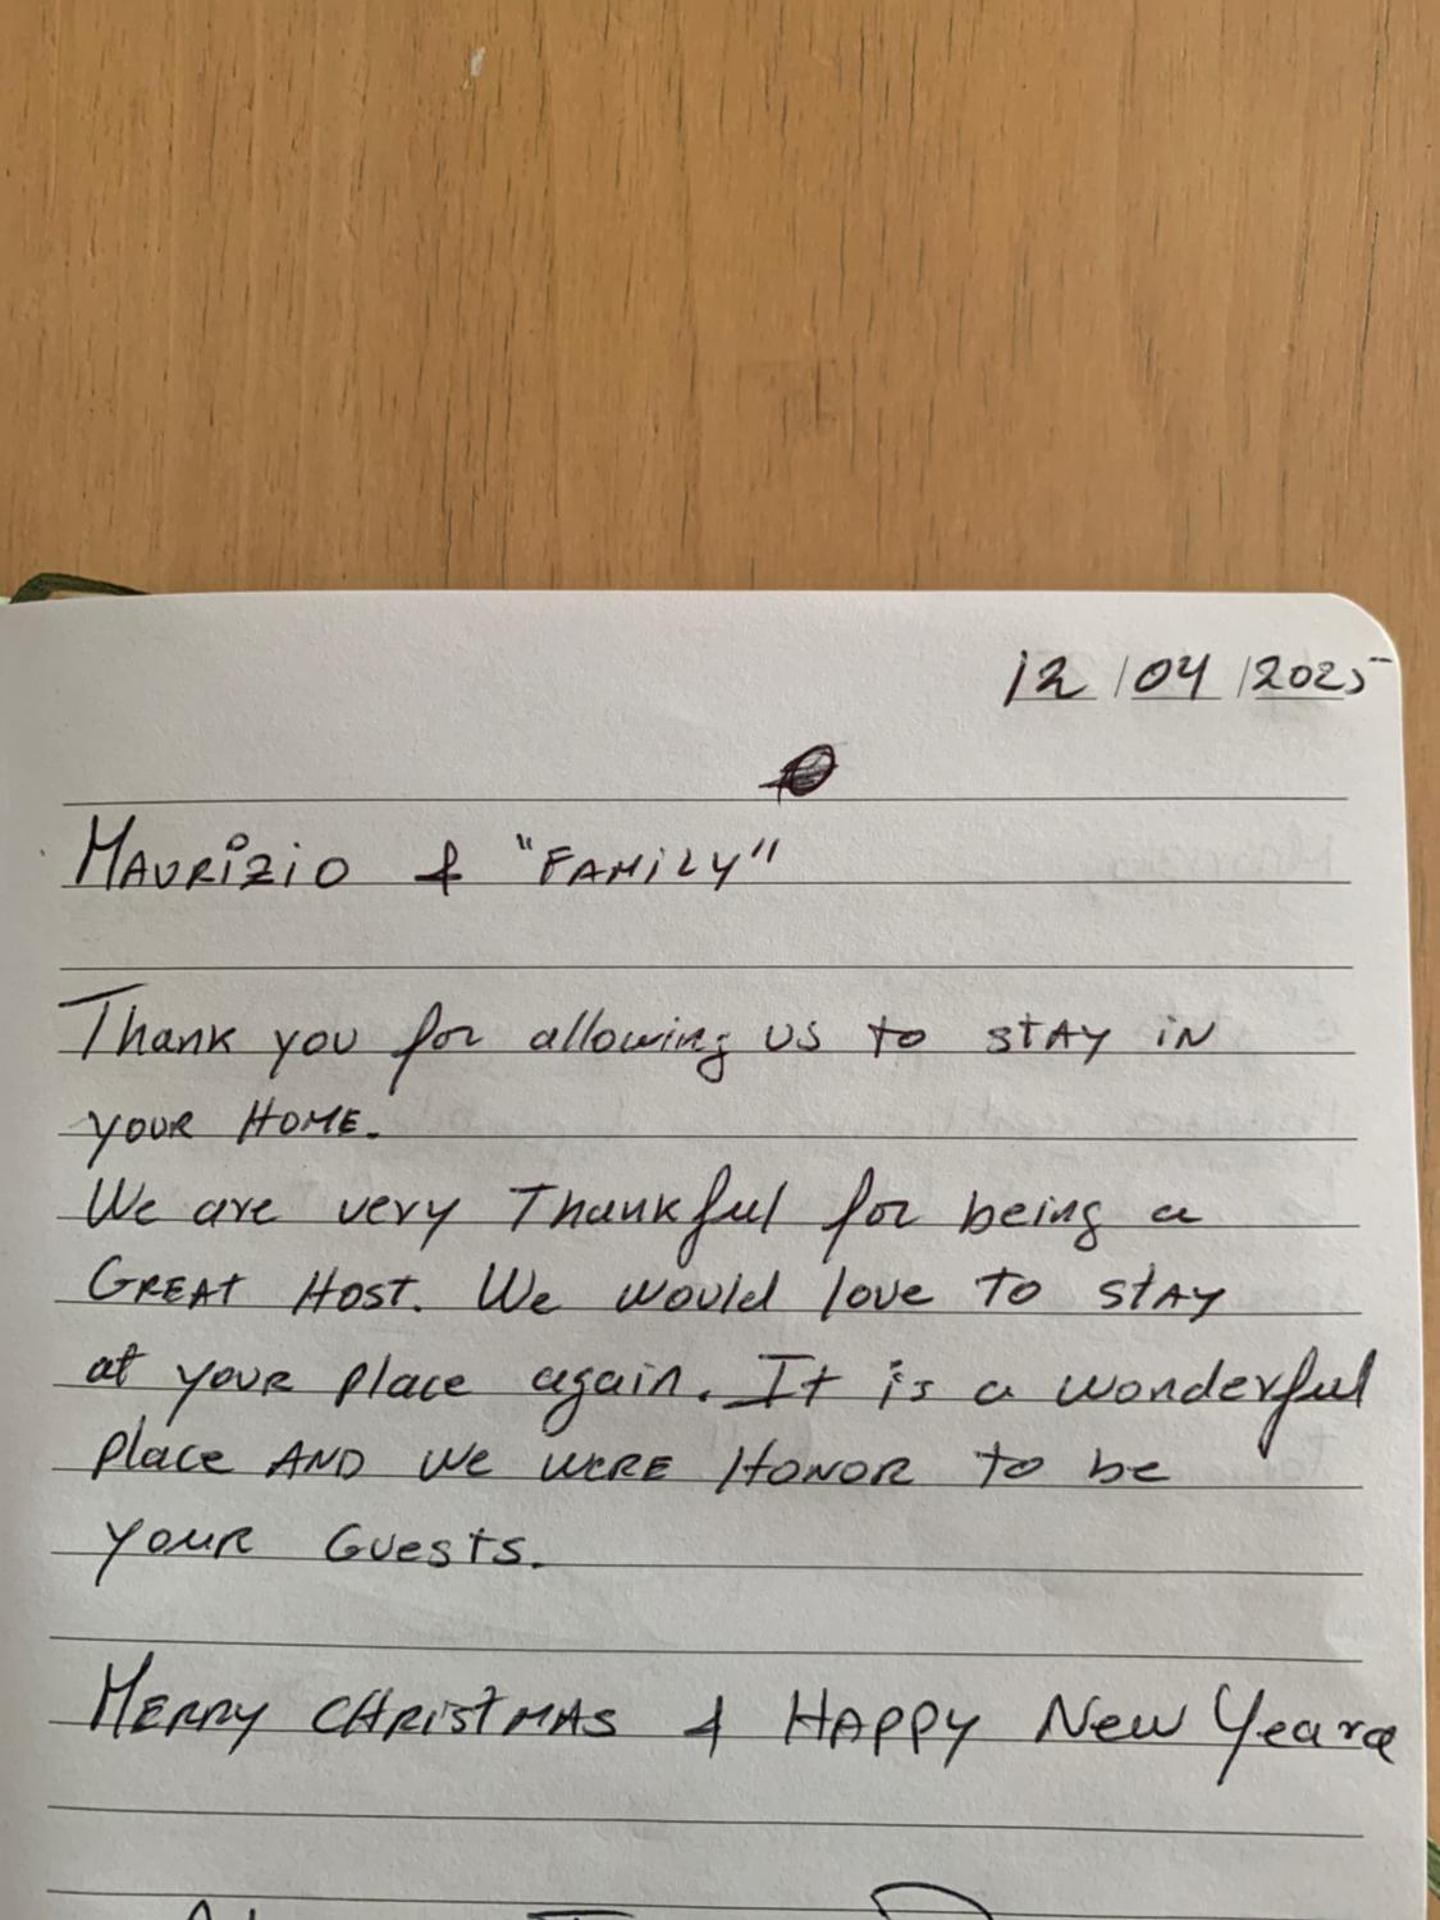 12/04/2025
MAURiZiO & "FAMiLY"
Thank you for allowing US to STAY iN
YOUR HOME.
We are very Thankful for being a
GREAT HOST. We would love to STAY
at your place again. It is a wonderful
place AND we WERE HONOR to be
YOUR GUESTS.
MERRY CHRiSTMAS & HAPPY New Year